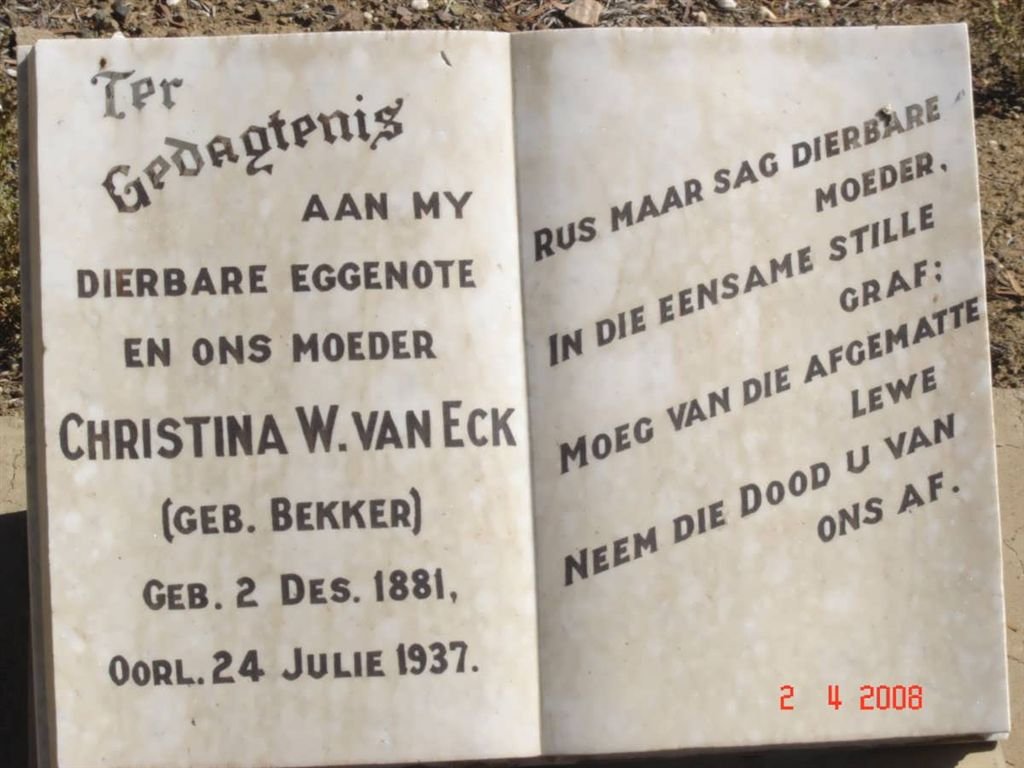 Ter
Gedagtenis
AAN MY
DIERBARE EGGENOTE
EN ONS MOEDER
CHRISTINA W. VAN ECK
(GEB. BEKKER)
GEB. 2 DES. 1881,
OORL. 24 JULIE 1937.
RUS MAAR SAG DIERBARE
MOEDER,
IN DIE EENSAME STILLE
GRAF;
MOEG VAN DIE AFGEMATTE
LEWE
NEEM DIE DOOD U VAN
ONS AF.
2 4 2008